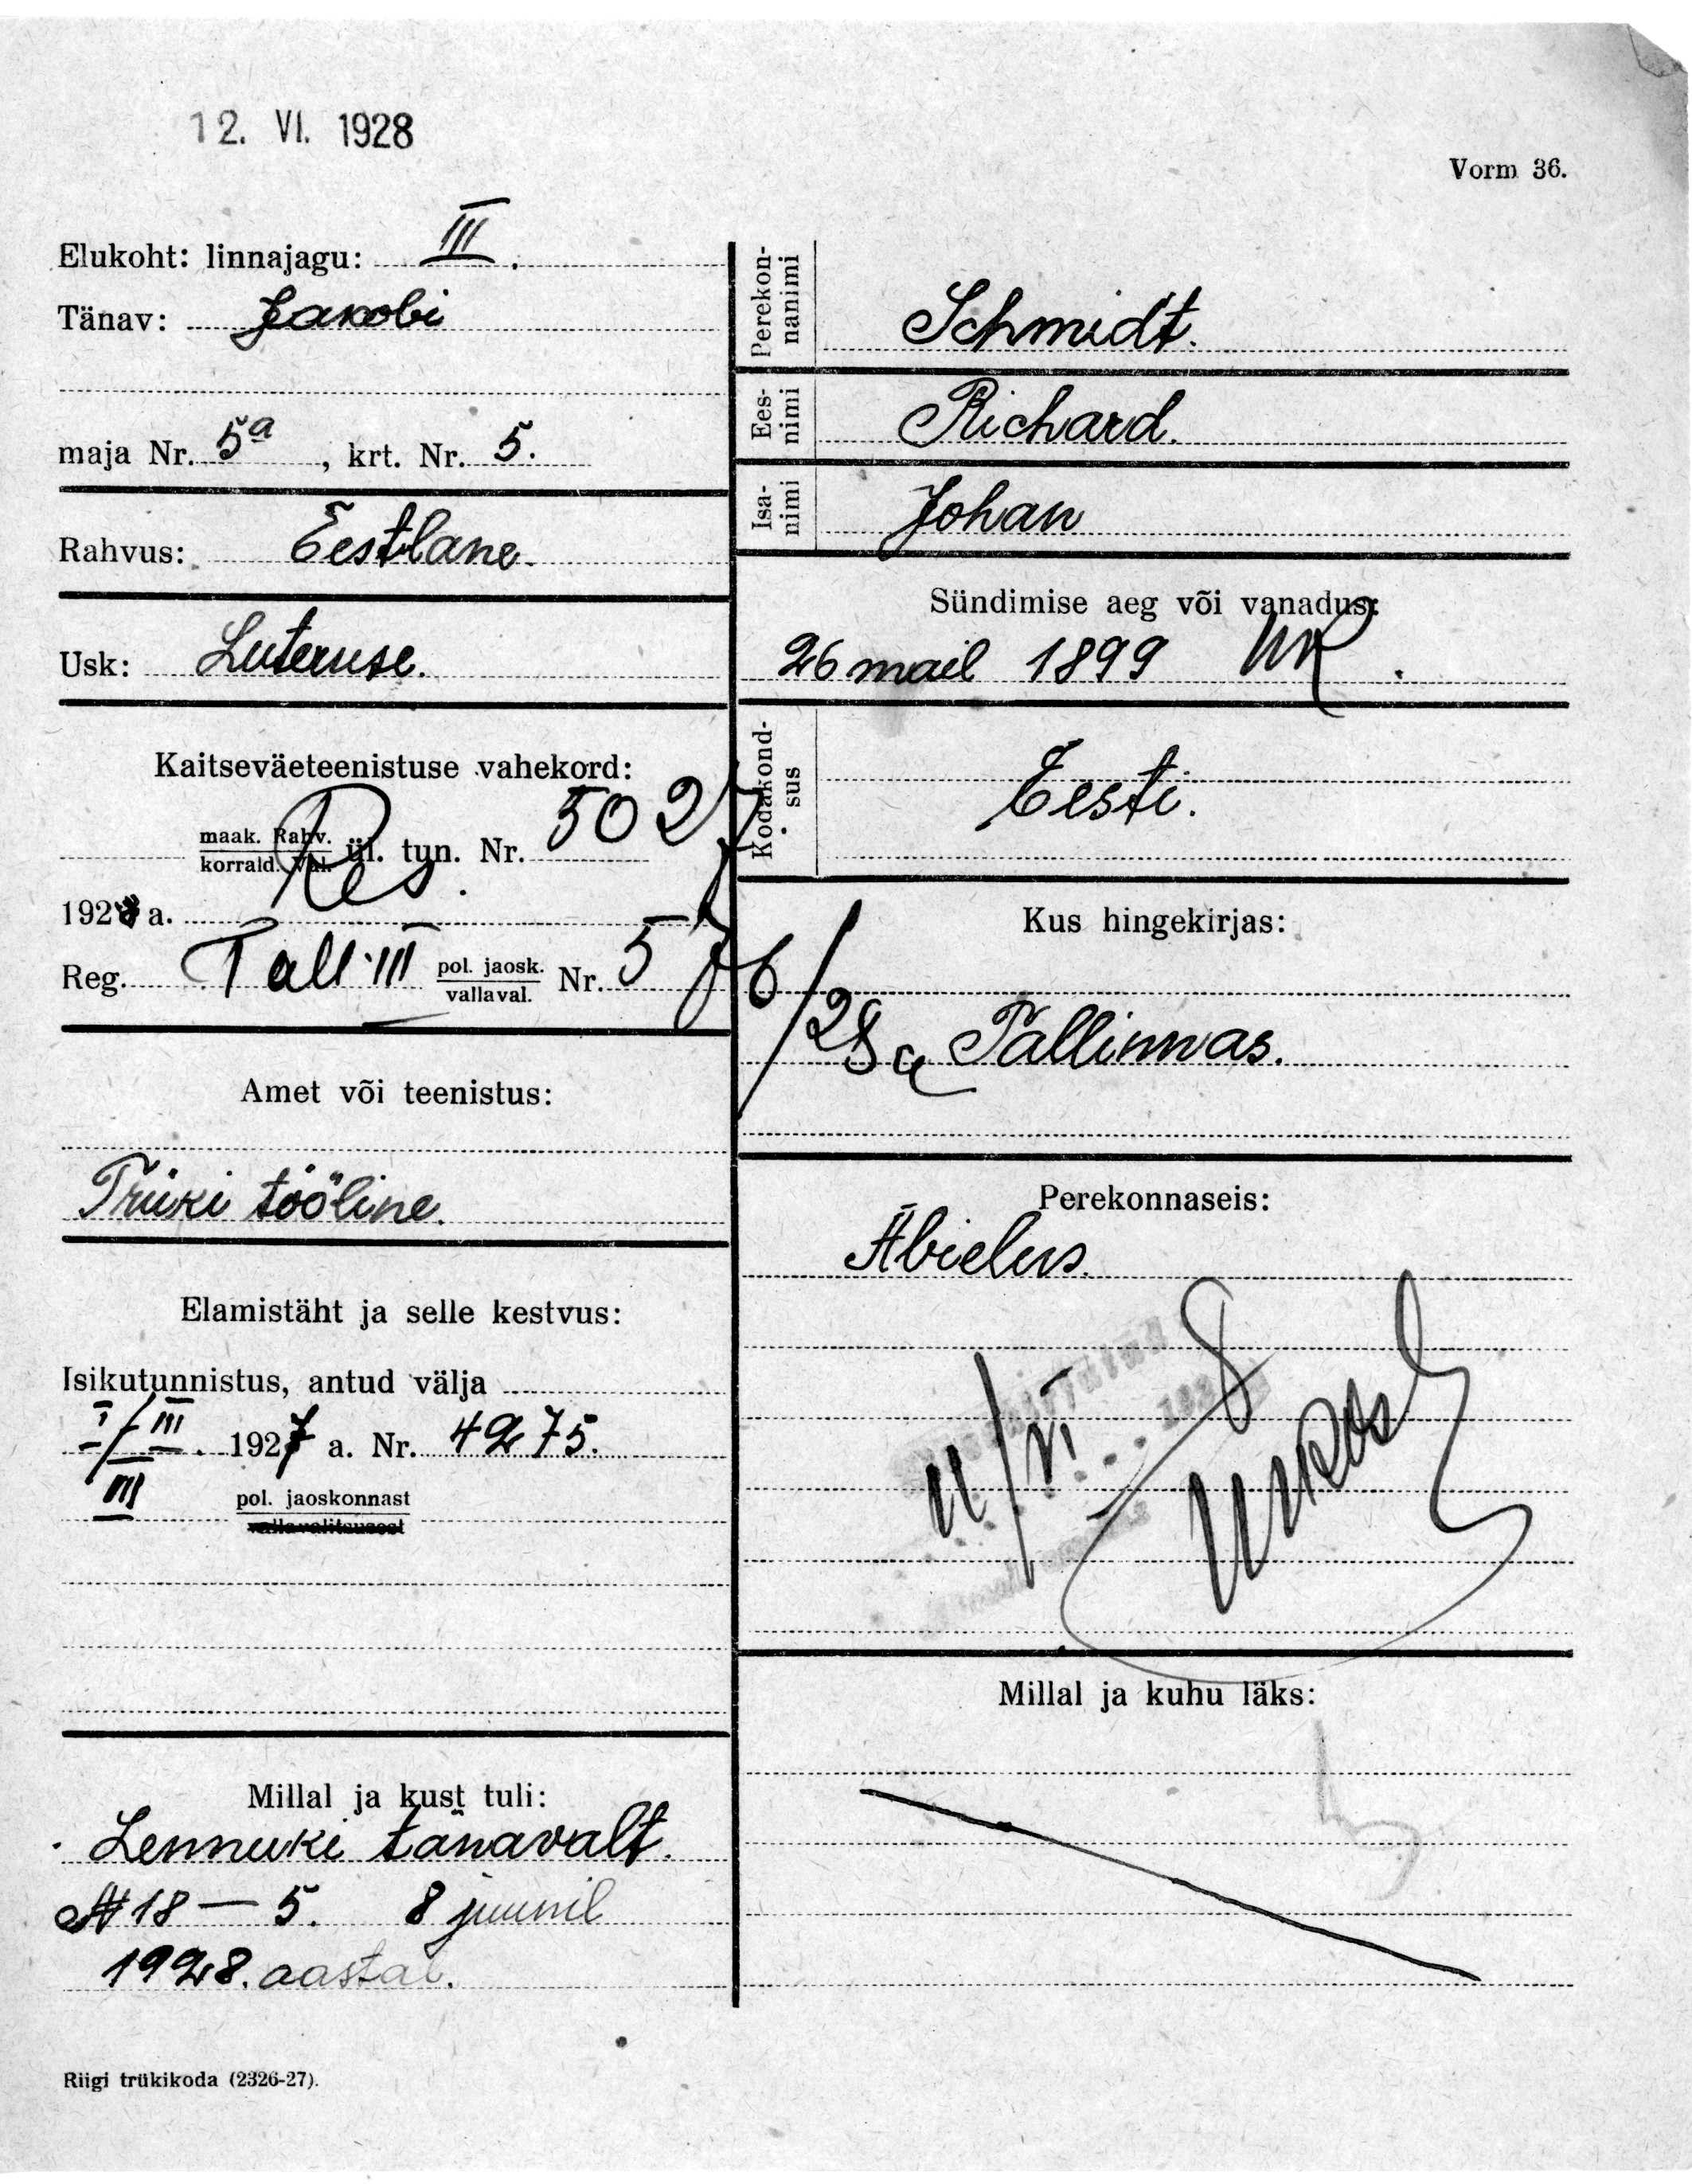 12. VI. 1928
Vorm 36.
Elukoht: linnajagu: III.
Tänav: Jakobi
maja Nr. 5a, krt. Nr. 5.
Rahvus: Eestlane.
Usk: Luteruse.
Kaitseväeteenistuse vahekord:
maak. Rahv.
korrald. Val. ül. tun. Nr. 5027
Res.
1928 a.
Reg. Tall. III pol. jaosk. Nr. 576/28 a
vallaval.
Amet või teenistus:
Trüki tööline.
Elamistäht ja selle kestvus:
Isikutunnistus, antud välja
I/III. 1927 a. Nr. 4275.
III pol. jaoskonnast
vallavalitsusest
Millal ja kust tuli:
Lennuki tänavalt.
№ 18 — 5. 8 juunil
1928. aastal.
Riigi trükikoda (2326-27).
Perekon-
nanimi
Schmidt.
Ees-
nimi
Richard.
Isa-
nimi
Johan
Sündimise aeg või vanadus:
26 mail 1899
Kodakond-
sus
Eesti.
Kus hingekirjas:
Tallinnas.
Perekonnaseis:
Abielus.
11/VI 8
Millal ja kuhu läks: